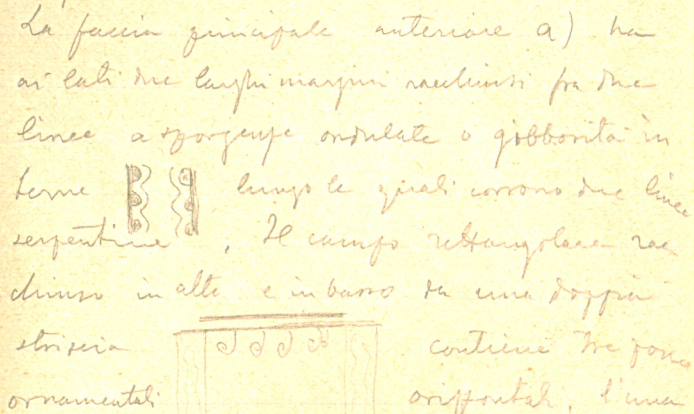 La faccia principale anteriore a) ha
ai lati due larghi margini racchiusi fra due
linee a sporgenze ondulate o gibbosità in
terne lungo le quali corrono due linee
serpentine, Il campo rettangolare rac
chiuso in alto e in basso da una doppia
striscia contiene tre fasce
ornamentali orizzontali, l'una